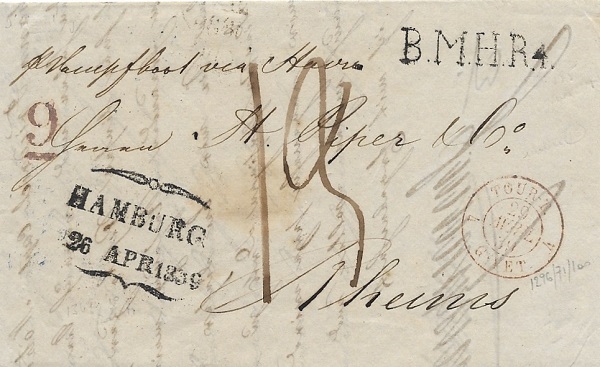 B.M.H.R.4.
p Dampfboot via Havre
9
Herren H. Piper & Co
19
HAMBURG
26 APR 1839
Rheims
TOUR-T
GIVET
1296/71/100